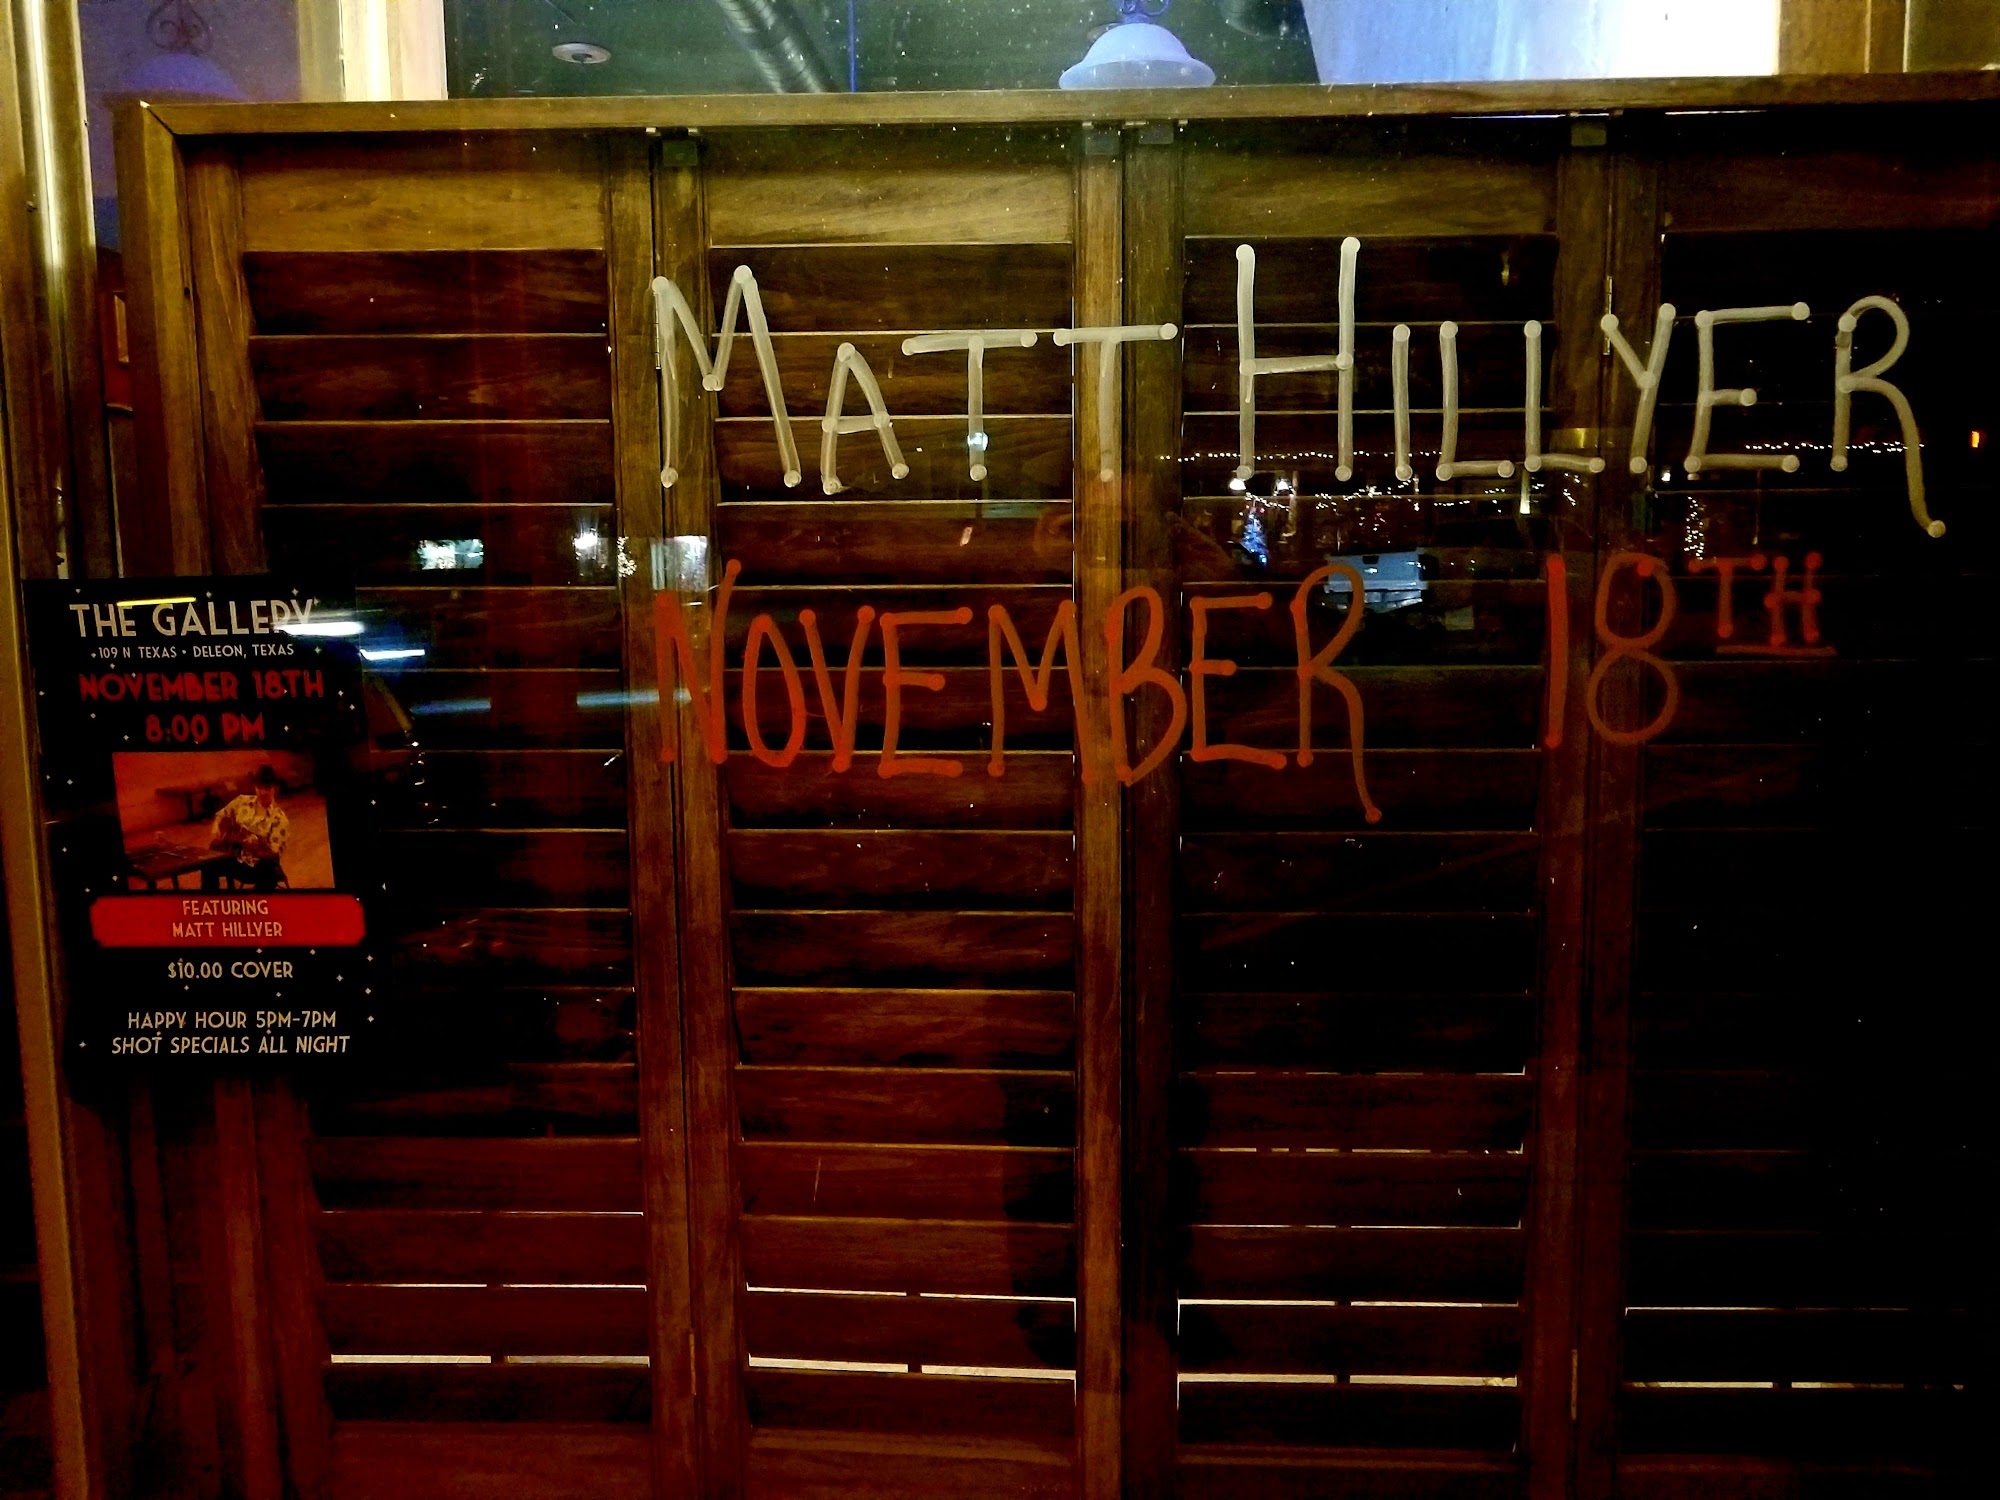 MATT HILLYER
NOVEMBER 18TH
THE GALLERY
• 109 N TEXAS • DELEON, TEXAS
NOVEMBER 18TH
8:00 PM
FEATURING
MATT HILLYER
$10.00 COVER
HAPPY HOUR 5PM-7PM
SHOT SPECIALS ALL NIGHT